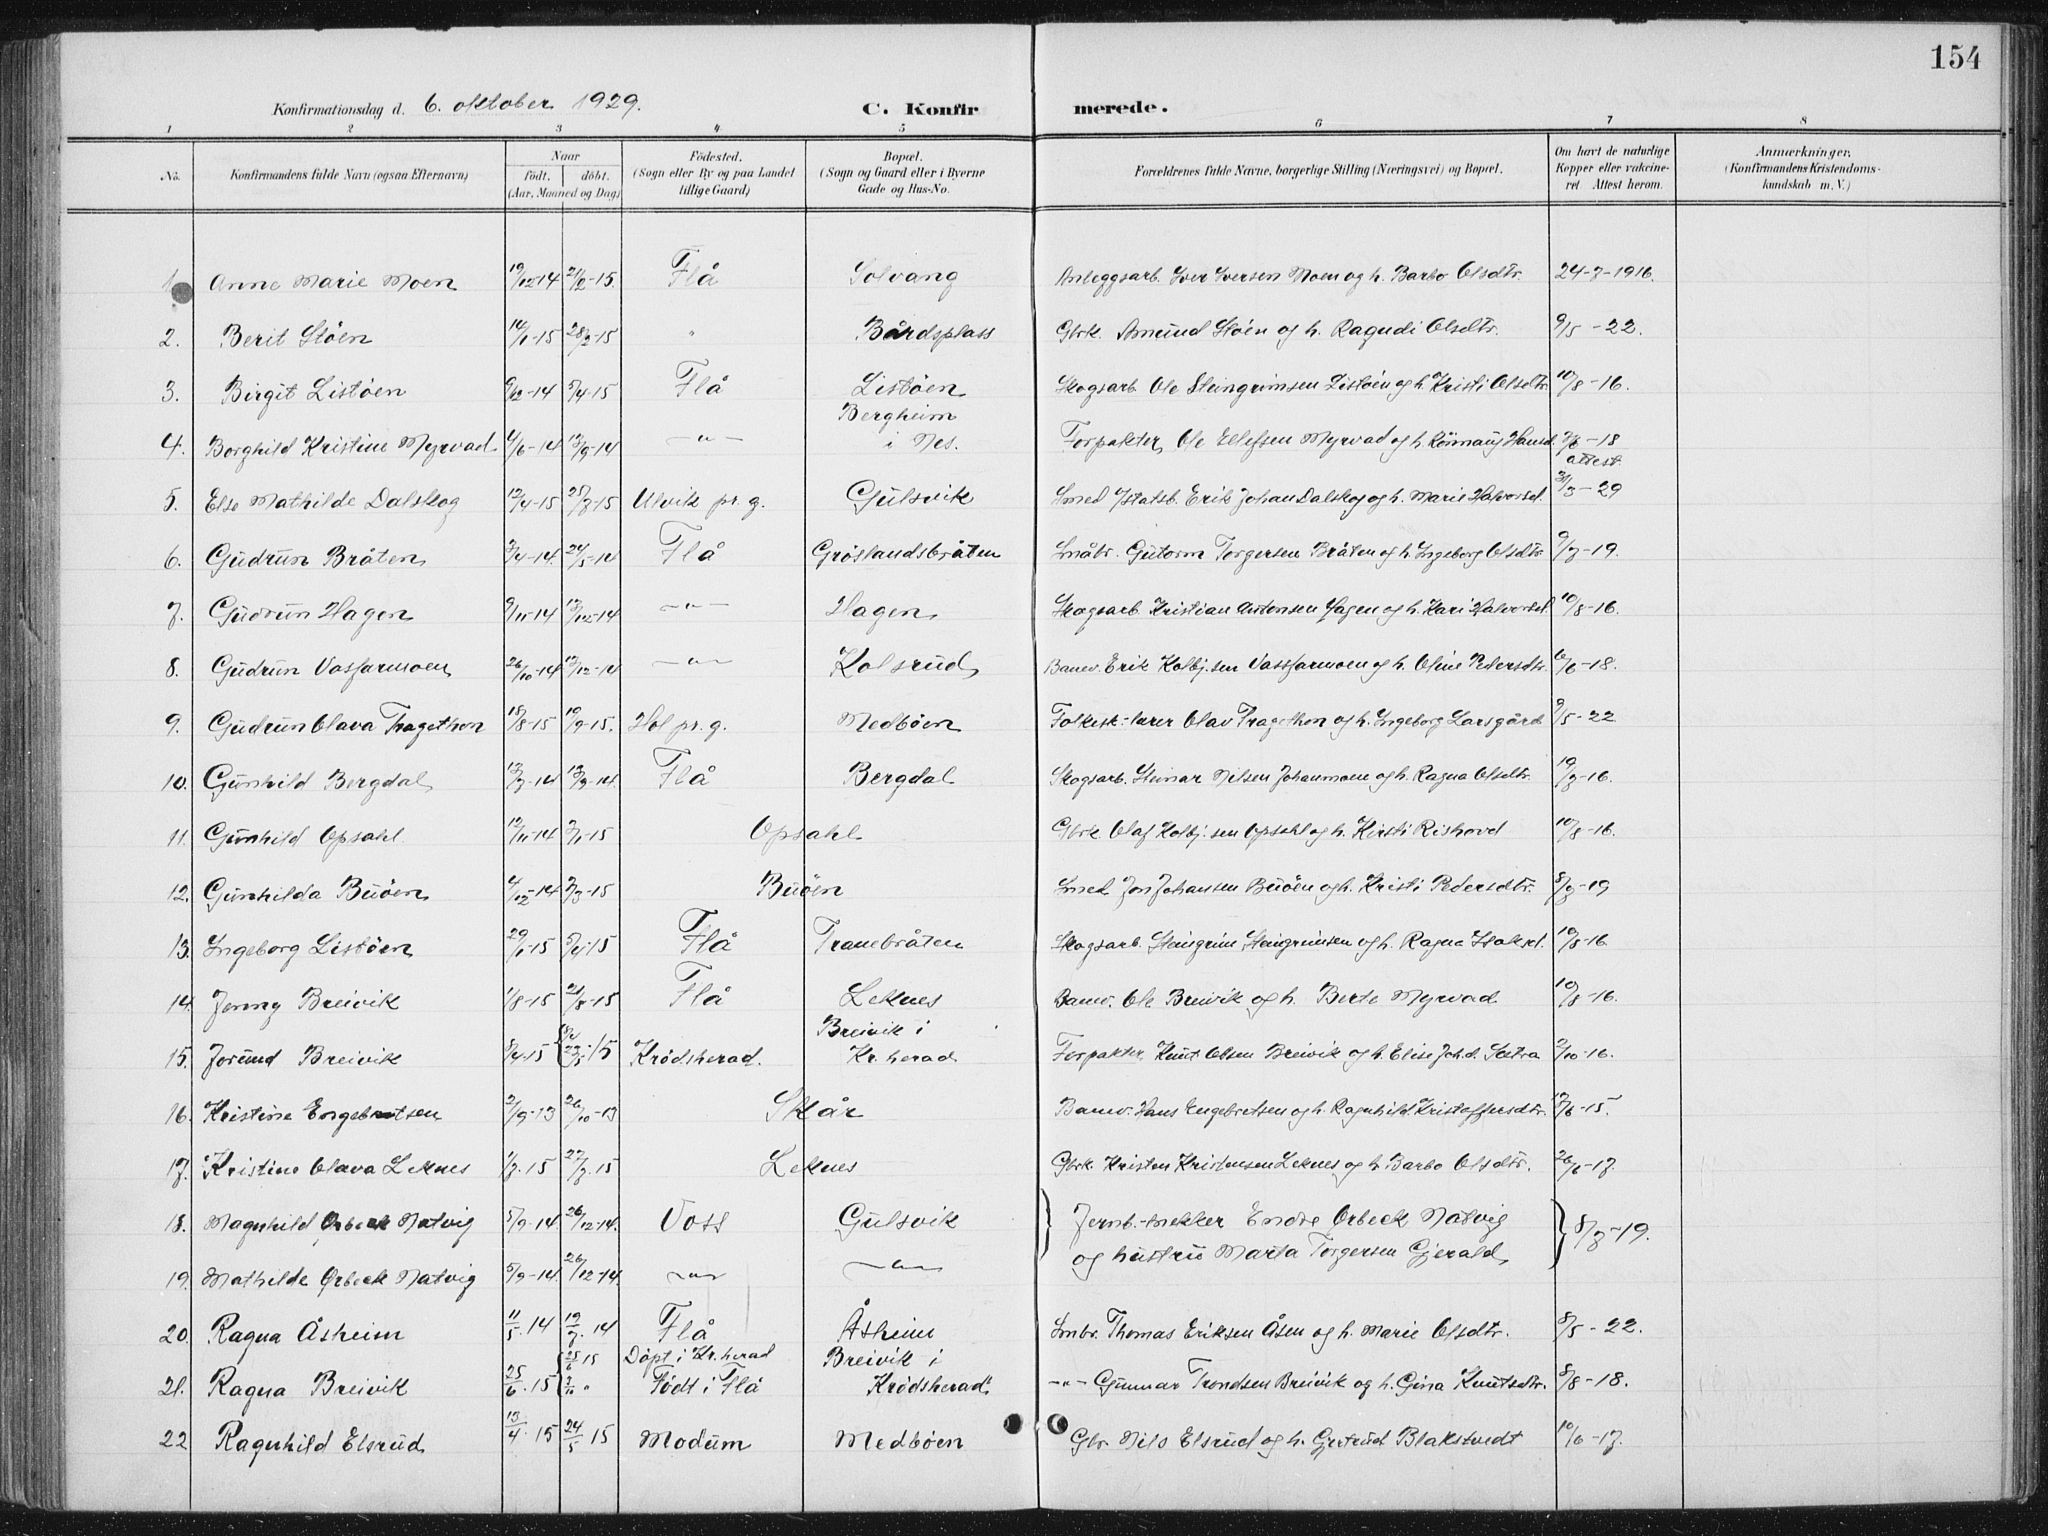 154
Konfirmationsdag d. 6. oktober 1929. C. Konfirmerede.
1 2 3 4 5 6 7 8
No. Konfirmandens fulde Navn (ogsaa Efternavn) Naar födt. döbt. (Aar, Maaned og Dag) Födested. (Sogn eller By og paa Landet tillige Gaard) Bopæl. (Sogn og Gaard eller i Byerne Gade og Hus-No. Forældrenes fulde Navne, borgerlige Stilling (Næringsvei) og Bopæl. Om havt de naturlige Kopper eller vakcineret. Attest herom. Anmærkninger. (Konfirmandens Kristendomskundskab m. V.)
1. Anne Marie Moen 19/12-14 21/2-15. Flå Solvang Anleggsarb. Iver Iversen Moen og h. Barbo Olsdtr. 24-7-1916.
2. Berit Støen 14/1-15 28/2-15 " Bårdsplass Gbrk. Amund Støen og h. Ragndi Olsdtr. 9/5-22.
3. Birgit Listøen 9/12-14 5/4-15 Flå Listøen Skogsarb. Ole Steingrimsen Listøen og h. Kristi Olsdtr. 10/8-16.
4. Borghild Kristine Myrvad 4/6-14 13/9-14 -"- Bergheim i Nes. Forpakter Ole Ellefsen Myrvad og h. Rönnaug Hansd. /6-18 attest
5. Else Mathilde Dalskog 12/4-15 25/7-15 Ulvik pr. g. Gulsvik Smed v/statsb. Erik Johan Dalskog og h. Marie Halvorsd. /3-29
6. Gudrun Bråten 3/4-14. 24/5-14 Flå Grøslandsbråten Småbr. Gutorm Torgersen Bråten og h. Ingeborg Olsdtr. 9/7-19.
7. Gudrun Hagen 9/11-14 13/12-14 -"- Hagen Skogsarb. Kristian Antonsen Hagen og h. Kari Halvorsd. 10/8-16.
8. Gudrun Vassfarmoen 26/10-14 13/12-14 -"- Kolsrud Banev. Erik Kolbj.sen Vassfarmoen og h. Oline Pedersdtr. /6-18.
9. Gudrun Olava Tragethon 18/8-15 19/9-15. Hol pr. g. Medbøen Folkesk-lærer Olav Tragethon og h. Ingeborg Larsgård 9/5-22
10. Gunhild Bergdal 12/7-14 13/9-14. Flå Bergdal Skogsarb. Steinar Nilsen Johanmoen og h. Ragna Olsdtr. 19/7-16.
11. Gunhild Opsahl 12/11-14 3/1-15 Opsahl Gbrk. Olaf Kolbj.sen Opsahl og h. Kirsti Rishovd 10/8-16.
12. Gunhilda Buøen 4/12-14 7/3-15 Buøen Smed Jon Johansen Buøen og h. Kristi Pedersdtr. 8/7-19
13. Ingeborg Listøen 29/1-15 5/4-15 Flå Tranebråten Skogsarb. Steingrim Steingrimsen og h. Ragna Isaksd. 10/8-16
14. Jenny Breivik 1/8-15 21/8-15 Flå Leknes Banev. Ole Breivik og h. Berte Myrvad 10/8-16.
15. Jorund Breivik 8/4-15 23/5-15 Krødsherad. Breivik i Kr.herad Forpakter Knut Olsen Breivik og h. Elise Joh.d. Sætra 2/10-16.
16. Kristine Engebretsen 2/9-13 26/10-13 Skår Banev. Hans Engebretsen og h. Ragnhild Kristoffersdtr. 12/6-15.
17. Kristine Olava Leknes 1/7-15 27/7-15 Leknes Gbrk. Kristen Kristensen Leknes og h. Barbo Olsdtr. 26/6-17.
18. Magnhild Ørbeck Natvig 5/9-14. 26/12-14. Voss Gulsvik Jernb.-snekker Endre Ørbeck Natvig og hustru Marta Torgersen Gjerald 8/7-19.
19. Mathilde Ørbeck Natvig 5/9-14. 26/12-14. -"- -"-
20. Ragna Åsheim 11/5.14 19/7.14 Flå Åsheim Smbr. Thomas Eriksen Åsen og h. Marie Olsdtr. 8/5-22.
21. Ragna Breivik 25/6.15 25/6 15 3/10 " Döpt i Kr.herad Födt i Flå Breivik i Krødsherad. -"- Gunnar Trondsen Breivik og h. Gina Knutsdtr. 8/8-18.
22 Ragnhild Elsrud 13/4.15 24/5 15 Modum Medbøen Gbr. Nils Elsrud og h. Gertrud Blakstvedt 10/6-17.